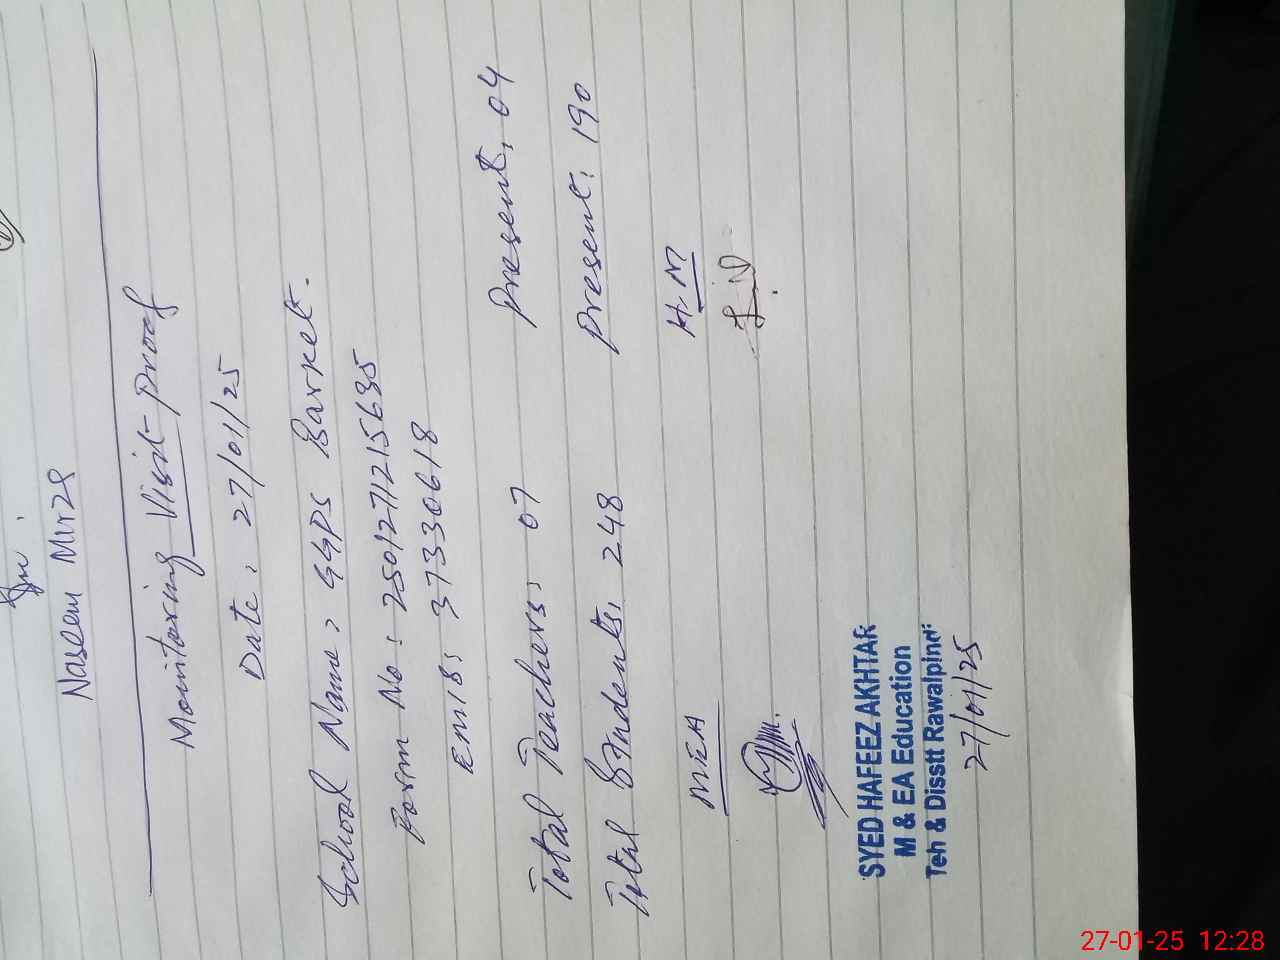 Naseem Mirza
Monitoring Visit-Proof
Date: 27/01/25
School Name: GGPS Barket.
Form No: 2501271215635
Emis: 37330618
Total Teachers: 07 Present: 04
Total Students: 248 Present: 190
MEA H.M
SYED HAFEEZ AKHTAR
M & EA Education
Teh & Disstt Rawalpindi
27/01/25
27-01-25 12:28